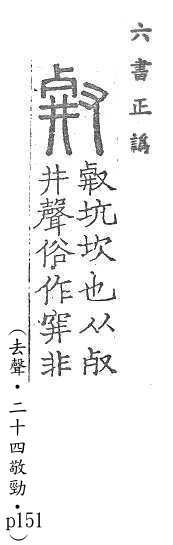 六書正譌
坑坎也从
井聲俗作穽非
(去聲・二十四敬勁・p151)